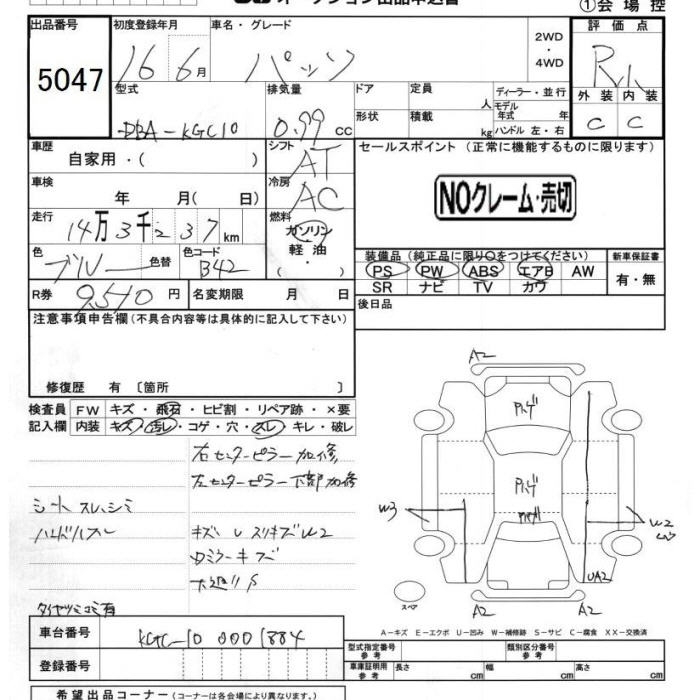 ①会場控
出品番号
5047
初度登録年月
16 6月
車名・グレード
パッソ
2WD
・
4WD
評価点
外装 内装
C C
型式
DBA-KGC10
排気量
0.99 cc
ドア
定員
人
形状
積載
kg
ディーラー・並行
モデル
年式 年
ハンドル 左・右
車歴
自家用・( )
シフト
AT
車検
年 月( 日)
冷房
AC
走行
14万3千237km
燃料
ガソリン
軽油
・
色
ブルー
色替
色コード
B42
R券
9510円
名変期限 月 日
セールスポイント (正常に機能するものに限ります)
NOクレーム・売切
装備品 (純正品に限り○をつけてください)
PS PW ABS エアB AW
SR ナビ TV カワ
新車保証書
有・無
後日品
注意事項申告欄(不具合内容等は具体的に記入して下さい)
修復歴 有 〔箇所 〕
検査員
記入欄
FW キズ・飛石・ヒビ割・リペア跡・×要
内装 キズ・汚レ・コゲ・穴・スレ・キレ・破レ
右センターピラー加修
左センターピラー下部加修
シート スレ、シミ
ハンドルスレ
タイヤツミコミ有
A2
W3
W2
UA2
A2
A2
スペア
A-キズ E-エクボ U-凹み W-補修跡 S-サビ C-腐食 XX-交換済
車台番号
KGC-10 0001884
登録番号
型式指定番号
参考
類別区分番号
参考
車庫証明用
参考
長さ cm
幅 cm
高さ cm
希望出品コーナー(コーナーは各会場により異なります。)